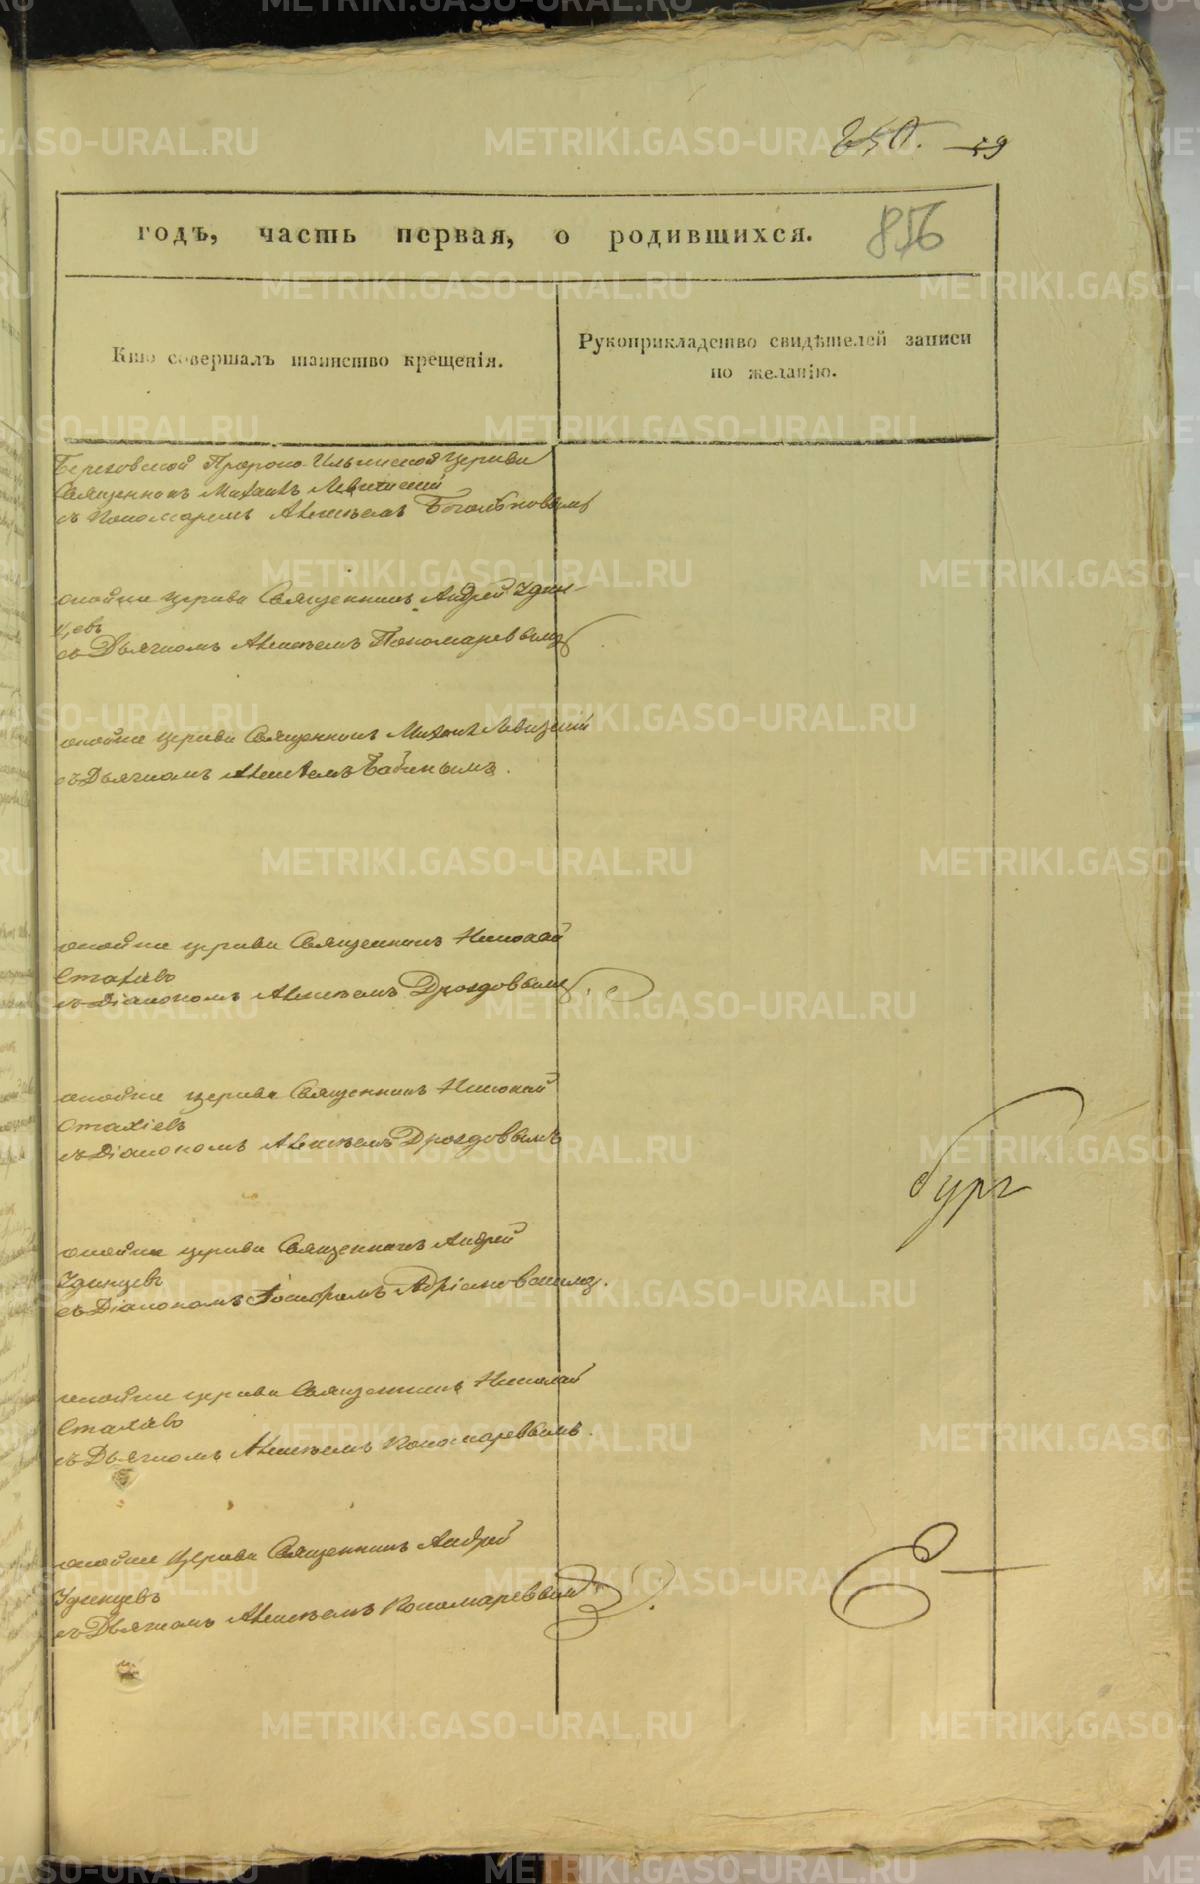 METRIKI.GASO-URAL.RU
856
годъ, часть первая, о родившихся.
Кто совершалъ таинство крещенія.
Рукоприкладство свидѣтелей записи
по желанію.
Березовской Пророко-Ильинской Церкви
Священникъ Михаилъ Левитскій
съ Пономаремъ Алексѣемъ
оной же церкви Священникъ Андрей Удин-
цевъ
съ Дьячкомъ Алексѣемъ Пономаревымъ
оной же церкви Священникъ Михаилъ Левицкій
съ Дьячкомъ Алексѣемъ Бабинымъ.
оной же церкви Священникъ Николай
Стахіевъ
съ Діакономъ Алексѣемъ Дроздовымъ.
оной же церкви Священникъ Николай
Стахіевъ
съ Діакономъ Алексѣемъ Дроздовымъ
бург
оной же церкви Священникъ Андрей
Удинцевъ
съ Діакономъ Іосифомъ Адріановскимъ.
оной же церкви Священникъ Николай
Стахіевъ
съ Дьячкомъ Алексѣемъ Пономаревымъ.
оной же Церкви Священникъ Андрей
Удинцевъ
съ Дьячкомъ Алексѣемъ Пономаревымъ.